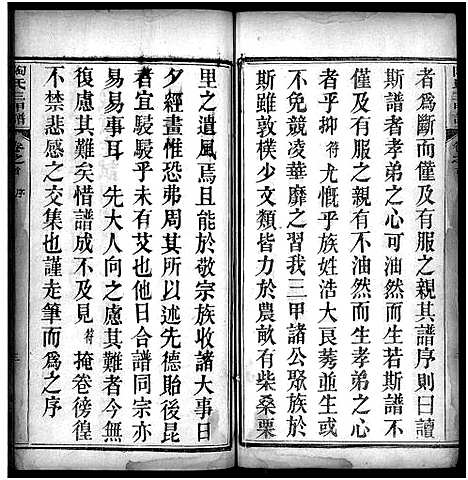 者爲斷而僅及有服之親其譜序則曰讀
斯譜者孝弟之心可油然而生若斯譜不
僅及有服之親有不油然而生孝弟之心
者乎抑符尤慨乎族姓浩大良莠並生或
不免競凌華靡之習我三甲諸公聚族於
斯雖敦樸少文類皆力於農畝有柴桑栗
里之遺風焉且能於敬宗族收諸大事日
夕經畫惟恐弗周其所以述先德貽後昆
者宜駸駸乎未有艾也他日合譜同宗亦
易易事耳 先大人向之慮其難者今無
復慮其難矣惜譜成不及見符掩卷徬徨
不禁悲感之交集也謹走筆而爲之序
陶氏三甲譜
卷之首 序